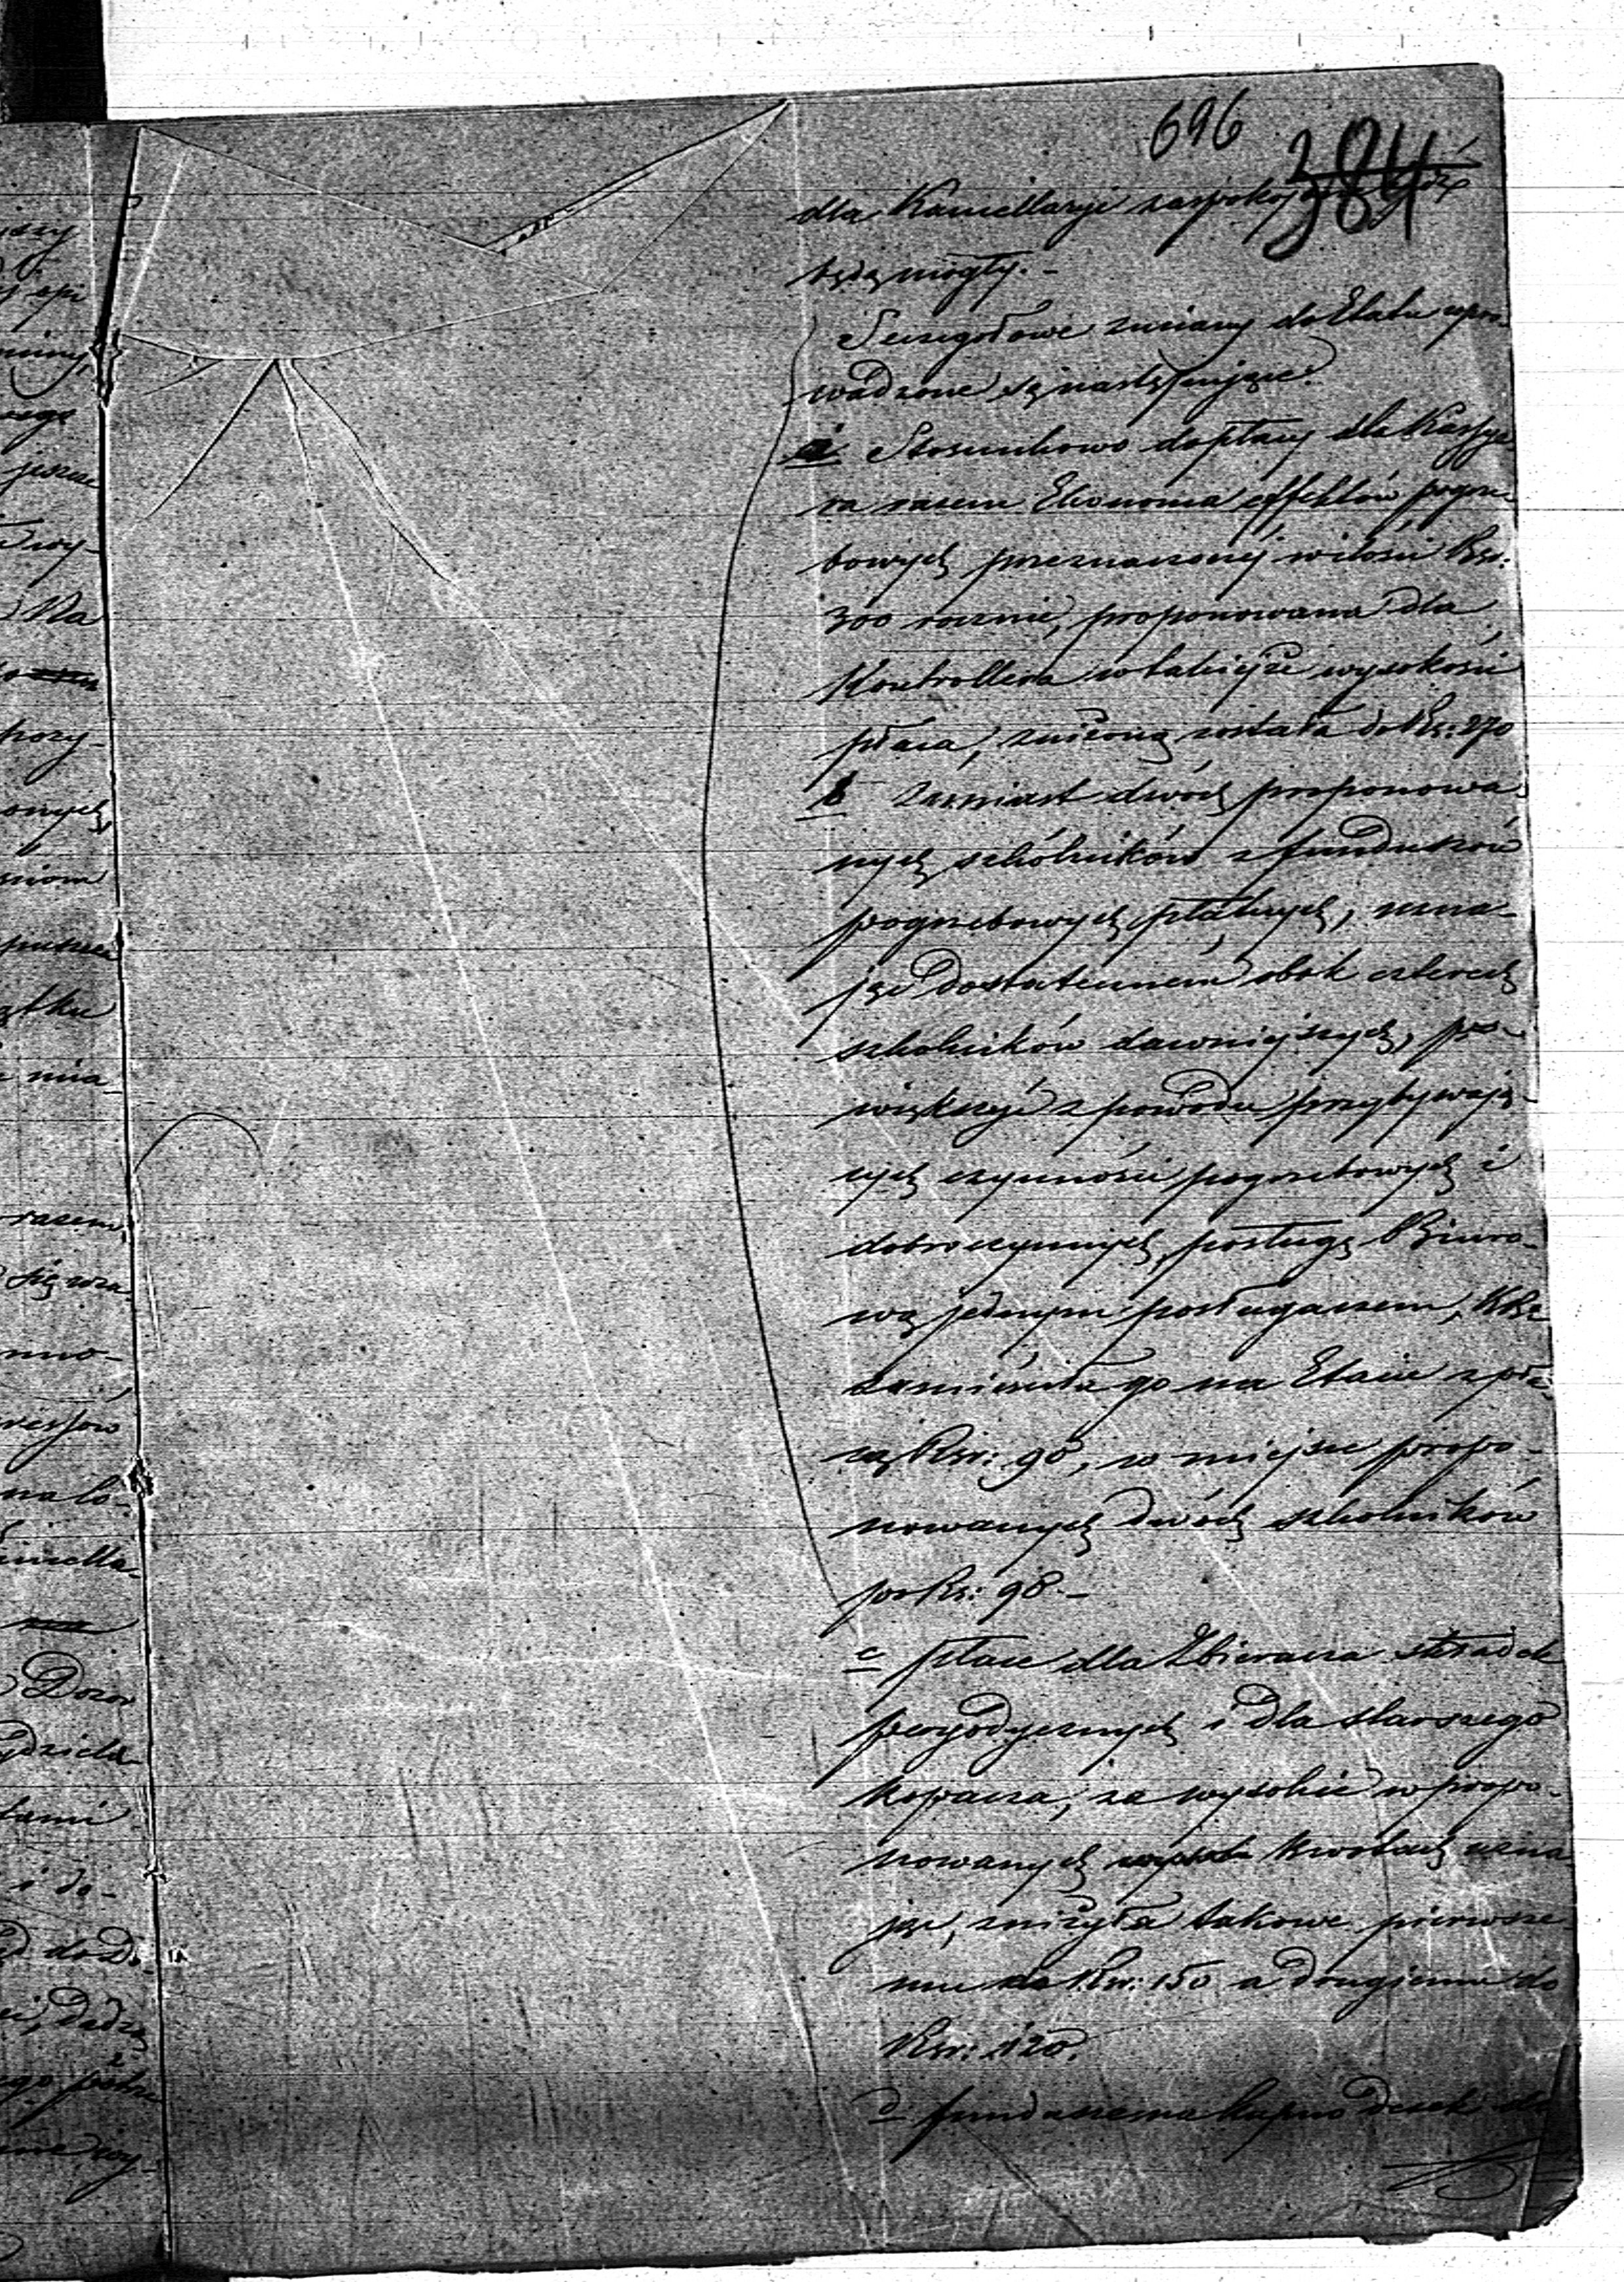 696
384
dla Kancellaryi zaspokojone
będą mogły.-
Szczegółowe zmiany do Etatu wpro-
wadzone są następujące:
a Stosunkowo do płacy dla Kassye-
ra razem Ekonoma effektów pogrze-
bowych przeznaczonej w ilości Rsr:
300 rocznie, proponowana dla
Kontrollera w takiejże wysokości
płaca, zniżoną została do Rs: 270
b zamiast dwóch proponowa-
nych szkólników z funduszów
pogrzebowych płatnych, uzna-
jąc dostatecznem obok czterech
szkolników dawniejszych, po-
większyć z powodu przybywają-
cych czynności pogrzebowych i
dobroczynnych, posługę Biuro-
wą jednym posługaczem, KRz
zamieściła go na Etacie z pła-
cą Rsr: 90, w miejsce propo-
nowanych dwóch szkolników
po Rs: 98.-
c płace dla Zbieracza składek
peryodycznych i dla starszego
kopacza, za wysokie w propo-
nowanych kwotach uzna-
jąc, zniżyła takowe pierwsze-
mu do Rsr: 150 a drugiemu do
Rsr: 120.
d fundusz na kupno desek do
jeszcze
Na
pozy-
onych,
razem,
się wza
Dozor
i do-